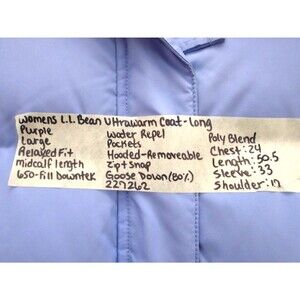 Womens L.L. Bean Ultrawarm Coat-Long
Purple
Large
Relaxed Fit
midcalf length
650-Fill Downtek
Water Repel
Pockets
Hooded-Removeable
Zip + Snap
Goose Down (80%)
227262
Poly Blend
Chest: 24
Length: 50.5
Sleeve: 33
Shoulder: 17